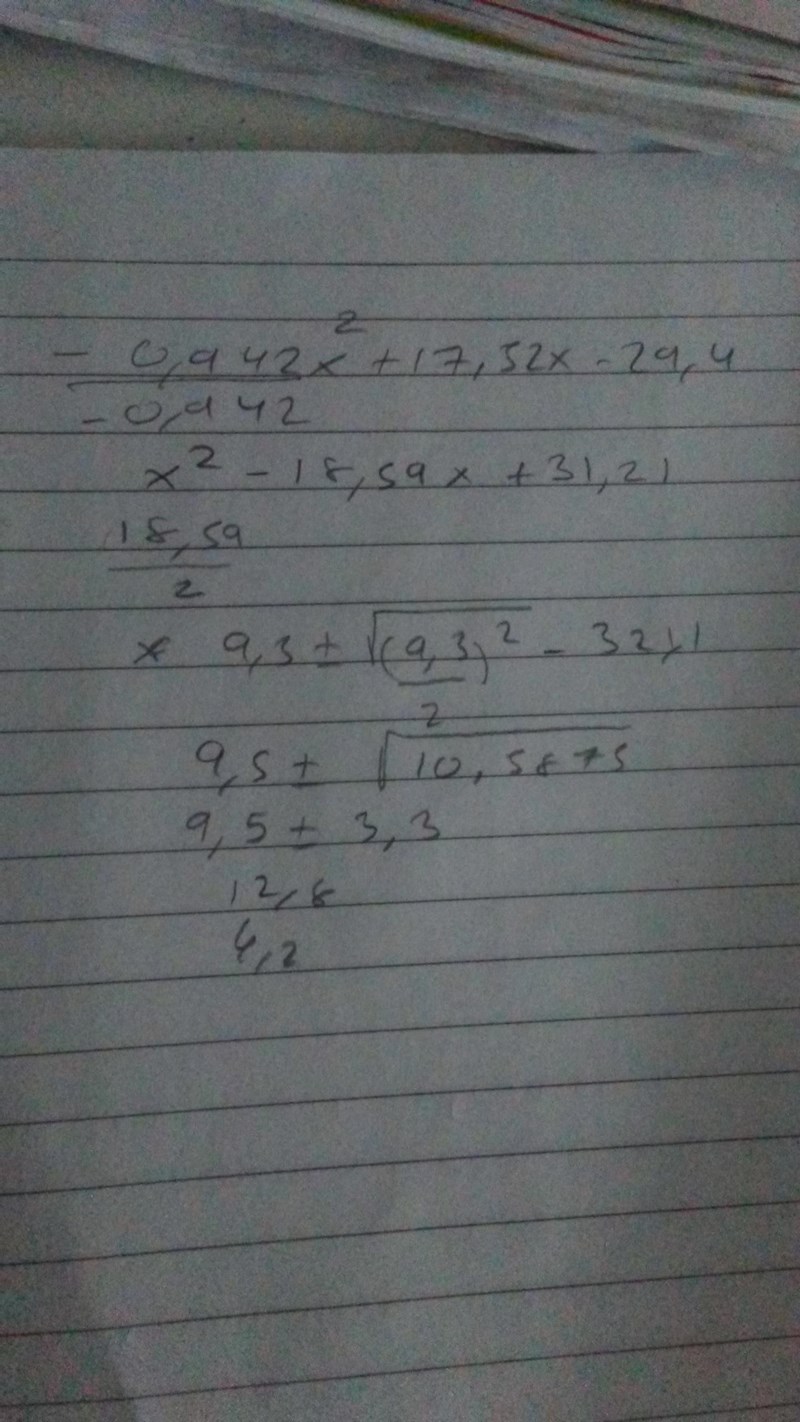 - 0,942x² + 17,52x - 29,4
- 0,942
x² - 18,59x + 31,21
18,59
2
x 9,3 ± √(9,3)² - 32,1
2
9,5 ± √10,5875
9,5 ± 3,3
12,8
4,2